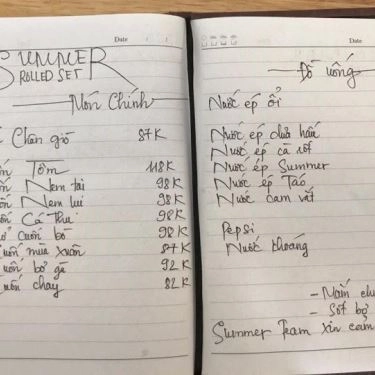 SUMMER
ROLLED SET
Món Chính
Chân giò 87K
Tôm 118K
Nem tai 98K
Nem lụi 98K
Cá Thu 98K
cuốn bò 98K
mùa xuân 87K
bơ gà 92K
chay 82K
Date
Date
Đồ uống
Nước ép ổi
Nước ép dưa hấu
Nước ép cà rốt
Nước ép Summer
Nước ép Táo
Nước cam vắt
Pepsi
Nước khoáng
- Mắm
- Sốt bơ
Summer Team xin cảm